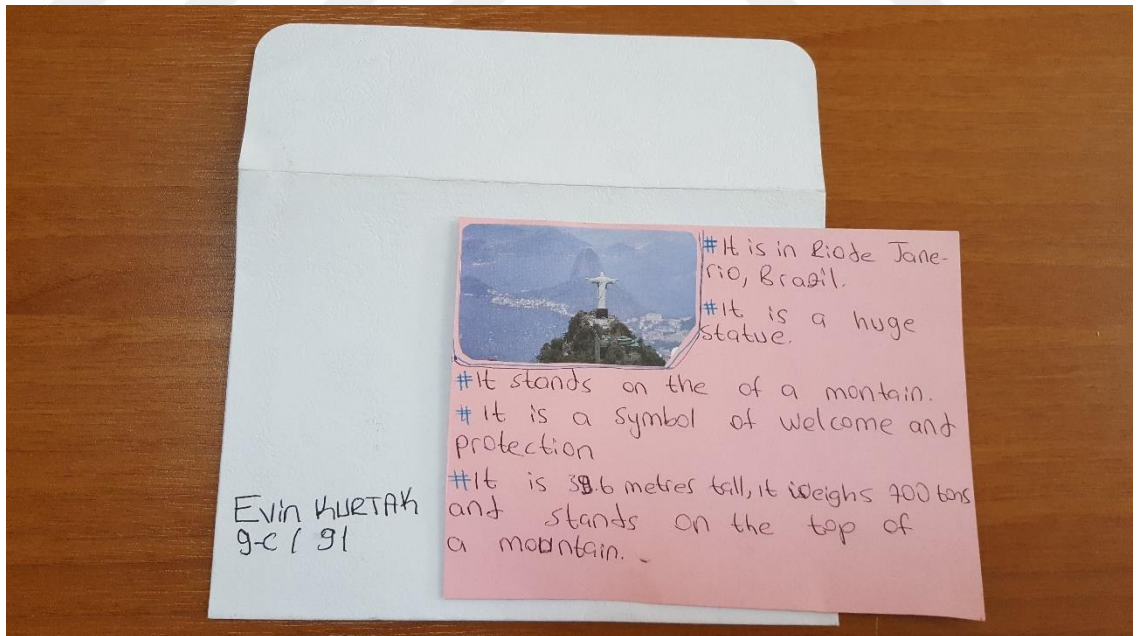 #It is in Riode Jane-
rio, Brazil.
#It is a huge
statue.
#It stands on the of a montain.
#It is a symbol of welcome and
protection
#It is 39.6 metres tall, it weighs 700 tons
and stands on the top of
a mountain.
Evin KURTAK
9-C / 91